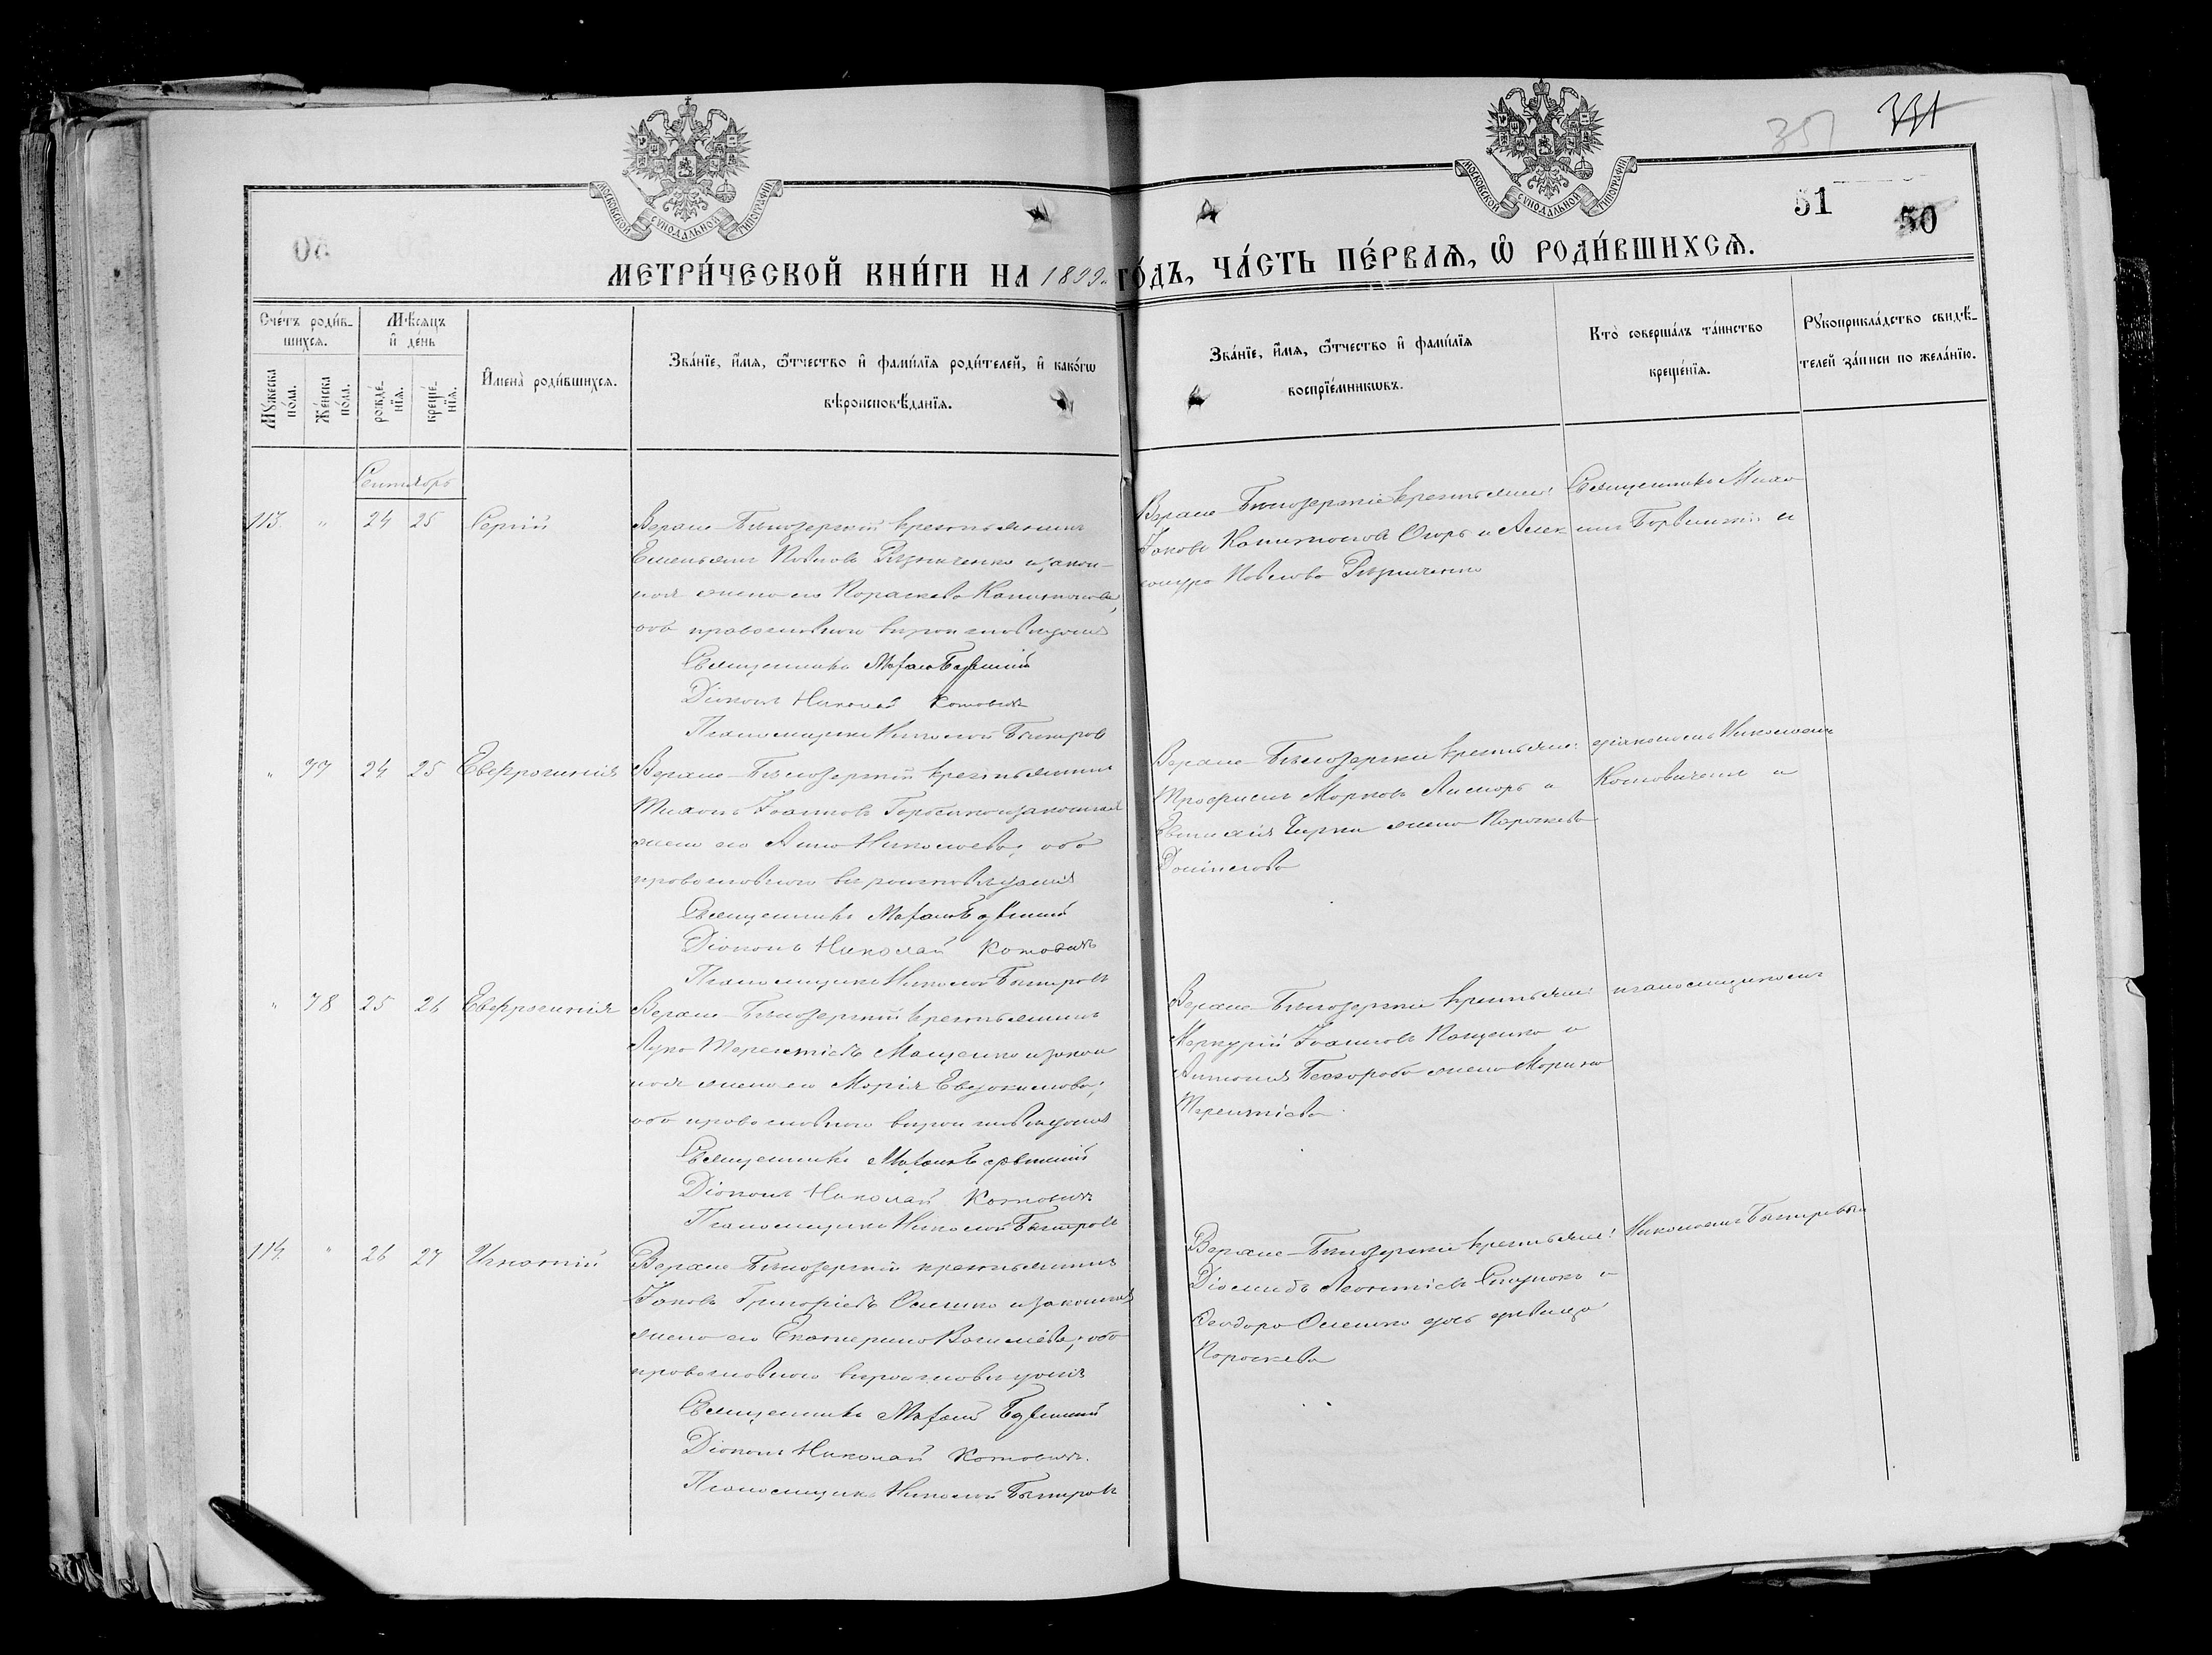 МОСКОВСКОЙ СУНОДАЛЬНОЙ ТИПОГРАФІИ
МОСКОВСКОЙ СУНОДАЛЬНОЙ ТИПОГРАФІИ
351
331
51
50
МЕТРИ́ЧЕСКОЙ КНИ́ГИ НА 1899 ГО́ДЪ, ЧА́СТЬ ПЕ́РВАѦ, Ѡ҆ РОДИ́ВШИХСѦ.
Сче́тъ роди́в-
шихсѧ.
Мѣ́сѧцъ
и҆ де́нь
Мꙋ́жеска по́ла.
Же́нска по́ла.
рожде́-
нїѧ.
креще́-
нїѧ.
И҆мена̀ роди́вшихсѧ.
Зва́нїе, и҆́мѧ, ѻ҆́тчество и҆ фами́лїѧ роди́телей, и҆ како́гѡ
вѣроисповѣ́данїѧ.
Зва́нїе, и҆́мѧ, ѻ҆́тчество и҆ фами́лїѧ
воспрїе́мникѡвъ.
Кто̀ соверша́лъ та́инство
креще́нїѧ.
Рꙋкоприкла́дство свидѣ́-
телей за́писи по жела́нїю.
Сентябрь
113. " 24 25 Сергій
Верхне-Бѣлозерскій крестьянинъ
Емельянъ Павловъ Рѣзниченко и закон-
ная жена его Параскева Капитонова,
оба православнаго вѣроисповѣданія
Священникъ
Діаконъ Николай Котовичъ
Псаломщикъ Николай Бытировъ
Верхне-Бѣлозерскіе крестьяне:
Іаковъ Капитоновъ и Алек-
сандра Павлова Рѣзниченко
Священникъ
и
" 77 24 25 Евфросинія
Верхне-Бѣлозерскій крестьянинъ
Тихонъ Іоанновъ Горбенко и законная
жена его Анна Николаева, оба
православнаго вѣроисповѣданія
Священникъ
Діаконъ Николай Котовичъ
Псаломщикъ Николай Бытировъ
Верхне-Бѣлозерскіе крестьяне:
Трофимъ Марковъ и
жена Параскева
Даніилова
діакономъ Николаемъ
Котовичемъ и
" 78 25 26 Евфросинія
Верхне-Бѣлозерскій крестьянинъ
Лука Терентіевъ Мащенко и закон
ная жена его Марія Евдокимова,
оба православнаго вѣроисповѣданія
Священникъ
Діаконъ Николай Котовичъ
Псаломщикъ Николай Бытировъ
Верхне-Бѣлозерскіе крестьяне:
Меркурій Іоанновъ Пащенко и
Антонія жена Марина
Терентіева
псаломщикомъ
114. " 26 27 Игнатій
Верхне-Бѣлозерскій крестьянинъ
Іаковъ Григоріевъ Олешко и законная
жена его Екатерина Василіева, оба
православнаго вѣроисповѣданія
Священникъ
Діаконъ Николай Котовичъ.
Псаломщикъ Николай Бытировъ
Верхне-Бѣлозерскіе крестьяне:
Діомидъ Леонтіевъ и
Ѳеодора Олешко дочь дѣвица
Параскева
Николаемъ Бытировымъ